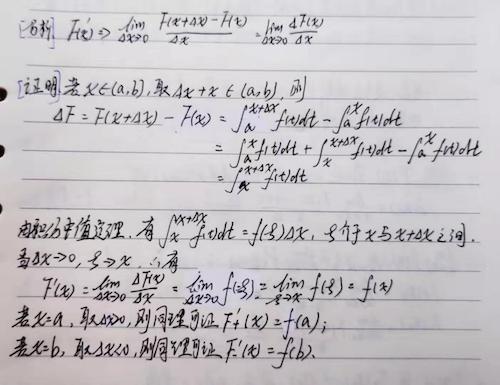 [分析] F'(x) ⇒ lim_{Δx→0} (F(x+Δx)-F(x))/Δx = lim_{Δx→0} ΔF(x)/Δx
[证明] 若x∈(a,b), 取Δx+x∈(a,b), 则
ΔF=F(x+Δx)-F(x)=∫_a^{x+Δx} f(t)dt-∫_a^x f(t)dt
=∫_a^x f(t)dt+∫_x^{x+Δx} f(t)dt-∫_a^x f(t)dt
=∫_x^{x+Δx} f(t)dt
由积分中值定理,有∫_x^{x+Δx} f(t)dt=f(ξ)Δx, ξ介于x与x+Δx之间.
当Δx→0, ξ→x, ∴有
F'(x)=lim_{Δx→0} ΔF(x)/Δx=lim_{Δx→0} f(ξ)=lim_{ξ→x} f(ξ)=f(x)
若x=a, 取Δx>0, 则同理可证F'₊(x)=f(a);
若x=b, 取Δx<0, 则同理可证F'₋(x)=f(b).